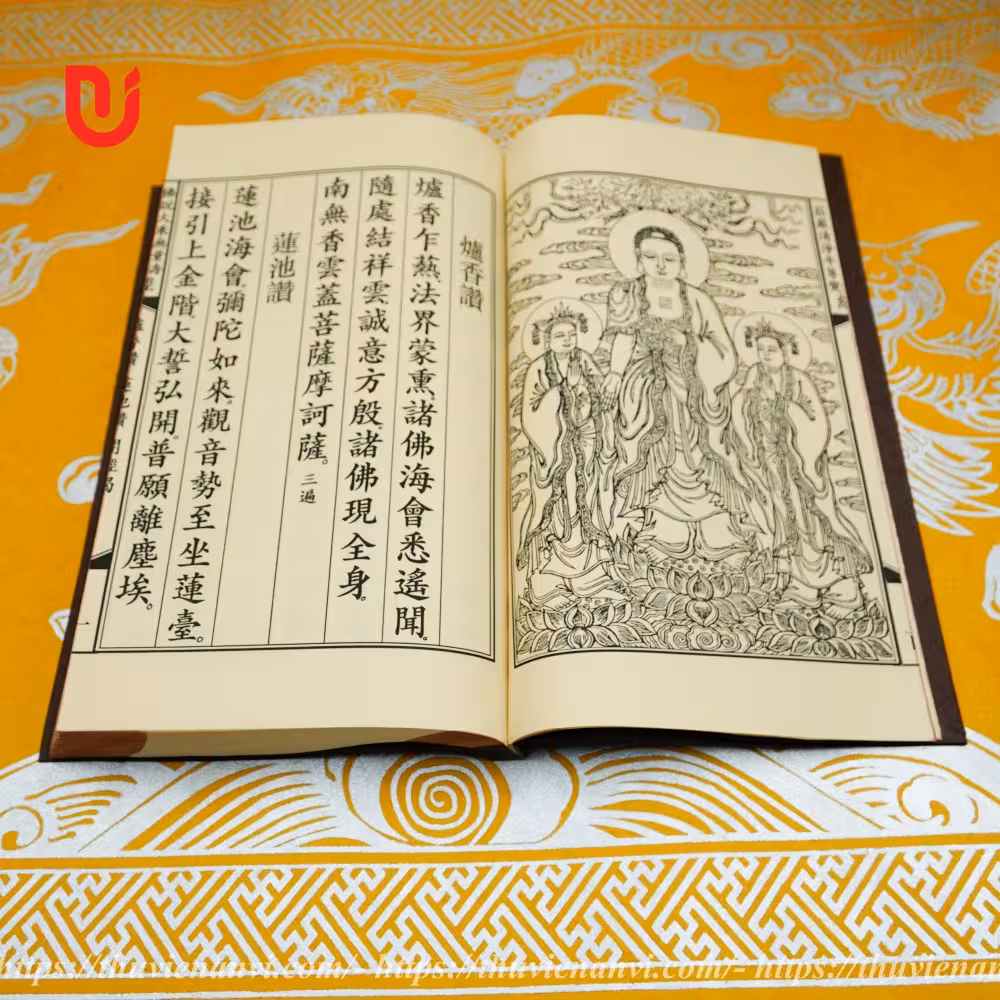 莊嚴清淨平等覺經
爐香讚
爐香乍爇、法界蒙熏、諸佛海會悉遙聞。
隨處結祥雲、誠意方殷、諸佛現全身。
南無香雲蓋菩薩摩訶薩。三遍
蓮池讚
蓮池海會、彌陀如來、觀音勢至坐蓮臺。
接引上金階、大誓弘開。普願離塵埃。
佛說大乘無量壽
一
https://thuvienanvi.com/- https://thuvienanvi.com/- https://thuvienan